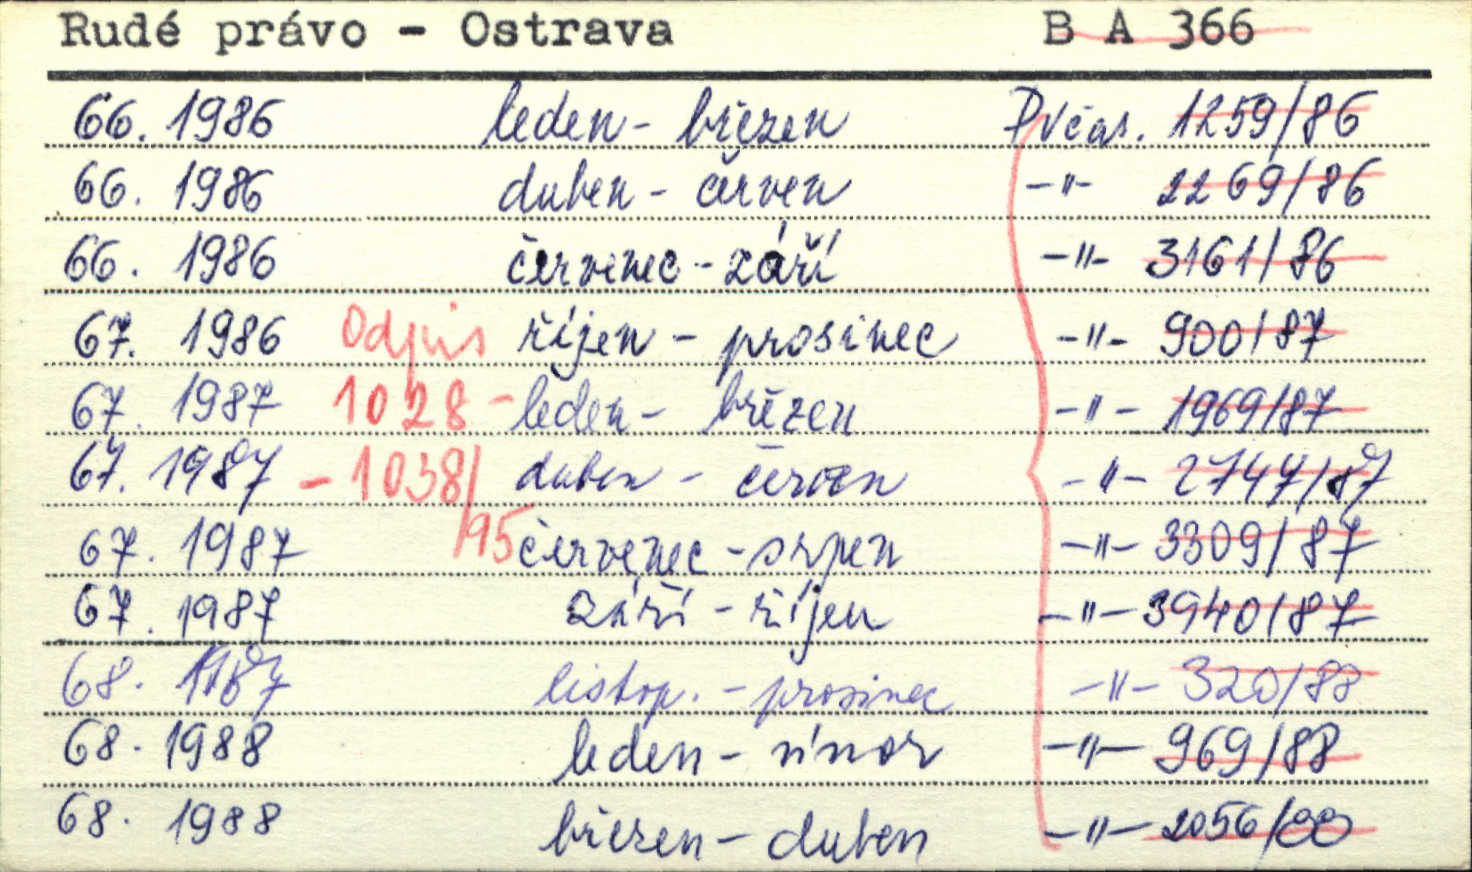 Rudé právo - Ostrava B A 366
66. 1986 leden - březen PVčas. 1259/86
66. 1986 duben - červen -"- 2269/86
66. 1986 červenec - září -"- 3161/86
67. 1986 Odpis říjen - prosinec -"- 900/87
67. 1987 1028 - leden - březen -"- 1969/87
67. 1987 - 1038/ duben - červen -"- 2747/87
67. 1987 /95 červenec - srpen -"- 3309/87
67. 1987 září - říjen -"- 3940/87
68. 1987 listop. - prosinec -"- 320/88
68. 1988 leden - únor -"- 969/88
68. 1988 březen - duben -"- 2056/88